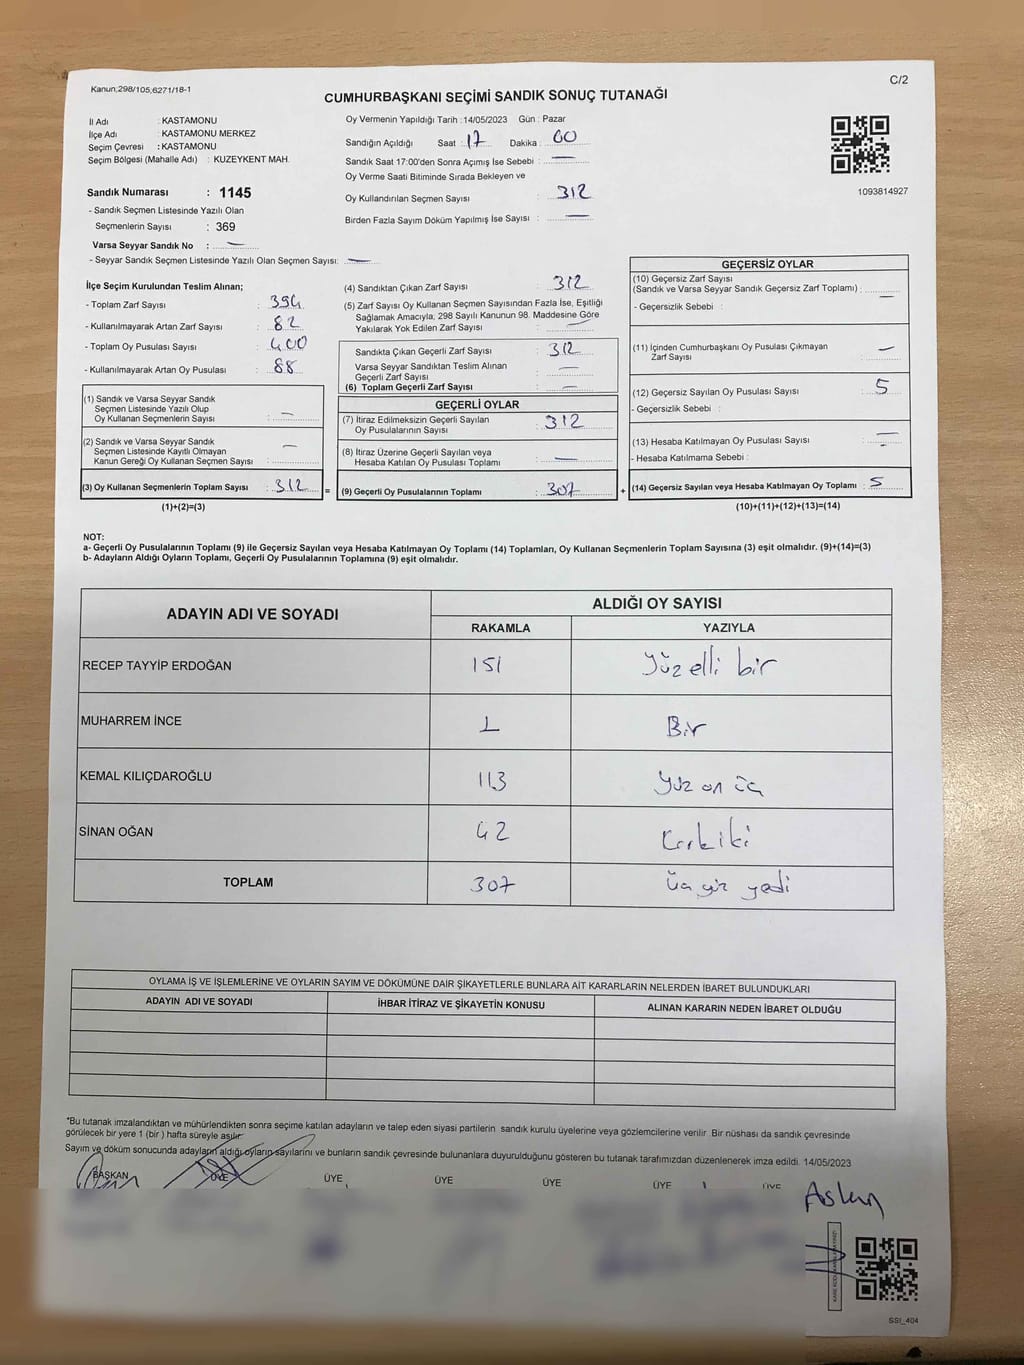 Kanun;298/105,6271/18-1
C/2
CUMHURBAŞKANI SEÇİMİ SANDIK SONUÇ TUTANAĞI
İl Adı : KASTAMONU
İlçe Adı : KASTAMONU MERKEZ
Seçim Çevresi : KASTAMONU
Seçim Bölgesi (Mahalle Adı) : KUZEYKENT MAH.
Sandık Numarası : 1145
- Sandık Seçmen Listesinde Yazılı Olan
Seçmenlerin Sayısı : 369
Varsa Seyyar Sandık No : —
- Seyyar Sandık Seçmen Listesinde Yazılı Olan Seçmen Sayısı: —
Oy Vermenin Yapıldığı Tarih :14/05/2023 Gün : Pazar
Sandığın Açıldığı Saat : 17 Dakika : 00
Sandık Saat 17:00'den Sonra Açımış İse Sebebi : —
Oy Verme Saati Bitiminde Sırada Bekleyen ve
Oy Kullandırılan Seçmen Sayısı : 312
Birden Fazla Sayım Döküm Yapılmış İse Sayısı : —
1093814927
İlçe Seçim Kurulundan Teslim Alınan;
- Toplam Zarf Sayısı : 394
- Kullanılmayarak Artan Zarf Sayısı : 82
- Toplam Oy Pusulası Sayısı : 400
- Kullanılmayarak Artan Oy Pusulası : 88
(1) Sandık ve Varsa Seyyar Sandık
Seçmen Listesinde Yazılı Olup
Oy Kullanan Seçmenlerin Sayısı : —
(2) Sandık ve Varsa Seyyar Sandık
Seçmen Listesinde Kayıtlı Olmayan
Kanun Gereği Oy Kullanan Seçmen Sayısı : —
(3) Oy Kullanan Seçmenlerin Toplam Sayısı : 312
(1)+(2)=(3)
=
(4) Sandıktan Çıkan Zarf Sayısı : 312
(5) Zarf Sayısı Oy Kullanan Seçmen Sayısından Fazla İse, Eşitliği
Sağlamak Amacıyla, 298 Sayılı Kanunun 98. Maddesine Göre
Yakılarak Yok Edilen Zarf Sayısı : —
Sandıkta Çıkan Geçerli Zarf Sayısı : 312
Varsa Seyyar Sandıktan Teslim Alınan
Geçerli Zarf Sayısı : —
(6) Toplam Geçerli Zarf Sayısı : —
GEÇERLİ OYLAR
(7) İtiraz Edilmeksizin Geçerli Sayılan
Oy Pusulalarının Sayısı : 312
(8) İtiraz Üzerine Geçerli Sayılan veya
Hesaba Katılan Oy Pusulası Toplamı : —
(9) Geçerli Oy Pusulalarının Toplamı : 307
+
GEÇERSİZ OYLAR
(10) Geçersiz Zarf Sayısı
(Sandık ve Varsa Seyyar Sandık Geçersiz Zarf Toplamı) : —
- Geçersizlik Sebebi :
(11) İçinden Cumhurbaşkanı Oy Pusulası Çıkmayan
Zarf Sayısı : —
(12) Geçersiz Sayılan Oy Pusulası Sayısı : 5
- Geçersizlik Sebebi :
(13) Hesaba Katılmayan Oy Pusulası Sayısı : —
- Hesaba Katılmama Sebebi : -
(14) Geçersiz Sayılan veya Hesaba Katılmayan Oy Toplamı : 5
(10)+(11)+(12)+(13)=(14)
NOT:
a- Geçerli Oy Pusulalarının Toplamı (9) ile Geçersiz Sayılan veya Hesaba Katılmayan Oy Toplamı (14) Toplamları, Oy Kullanan Seçmenlerin Toplam Sayısına (3) eşit olmalıdır. (9)+(14)=(3)
b- Adayların Aldığı Oyların Toplamı, Geçerli Oy Pusulalarının Toplamına (9) eşit olmalıdır.
ADAYIN ADI VE SOYADI
ALDIĞI OY SAYISI
RAKAMLA YAZIYLA
RECEP TAYYİP ERDOĞAN 151 Yüz elli bir
MUHARREM İNCE 1 Bir
KEMAL KILIÇDAROĞLU 113 Yüz on üç
SİNAN OĞAN 42 Kırk iki
TOPLAM 307 Üç yüz yedi
OYLAMA İŞ VE İŞLEMLERİNE VE OYLARIN SAYIM VE DÖKÜMÜNE DAİR ŞİKAYETLERLE BUNLARA AİT KARARLARIN NELERDEN İBARET BULUNDUKLARI
ADAYIN ADI VE SOYADI İHBAR İTİRAZ VE ŞİKAYETİN KONUSU ALINAN KARARIN NEDEN İBARET OLDUĞU
*Bu tutanak imzalandıktan ve mühürlendikten sonra seçime katılan adayların ve talep eden siyasi partilerin sandık kurulu üyelerine veya gözlemcilerine verilir. Bir nüshası da sandık çevresinde
görülecek bir yere 1 (bir ) hafta süreyle asılır.
Sayım ve döküm sonucunda adayların aldığı oyların sayılarını ve bunların sandık çevresinde bulunanlara duyurulduğunu gösteren bu tutanak tarafımızdan düzenlenerek imza edildi. 14/05/2023
BAŞKAN ÜYE ÜYE ÜYE ÜYE ÜYE ÜYE
SSI_404